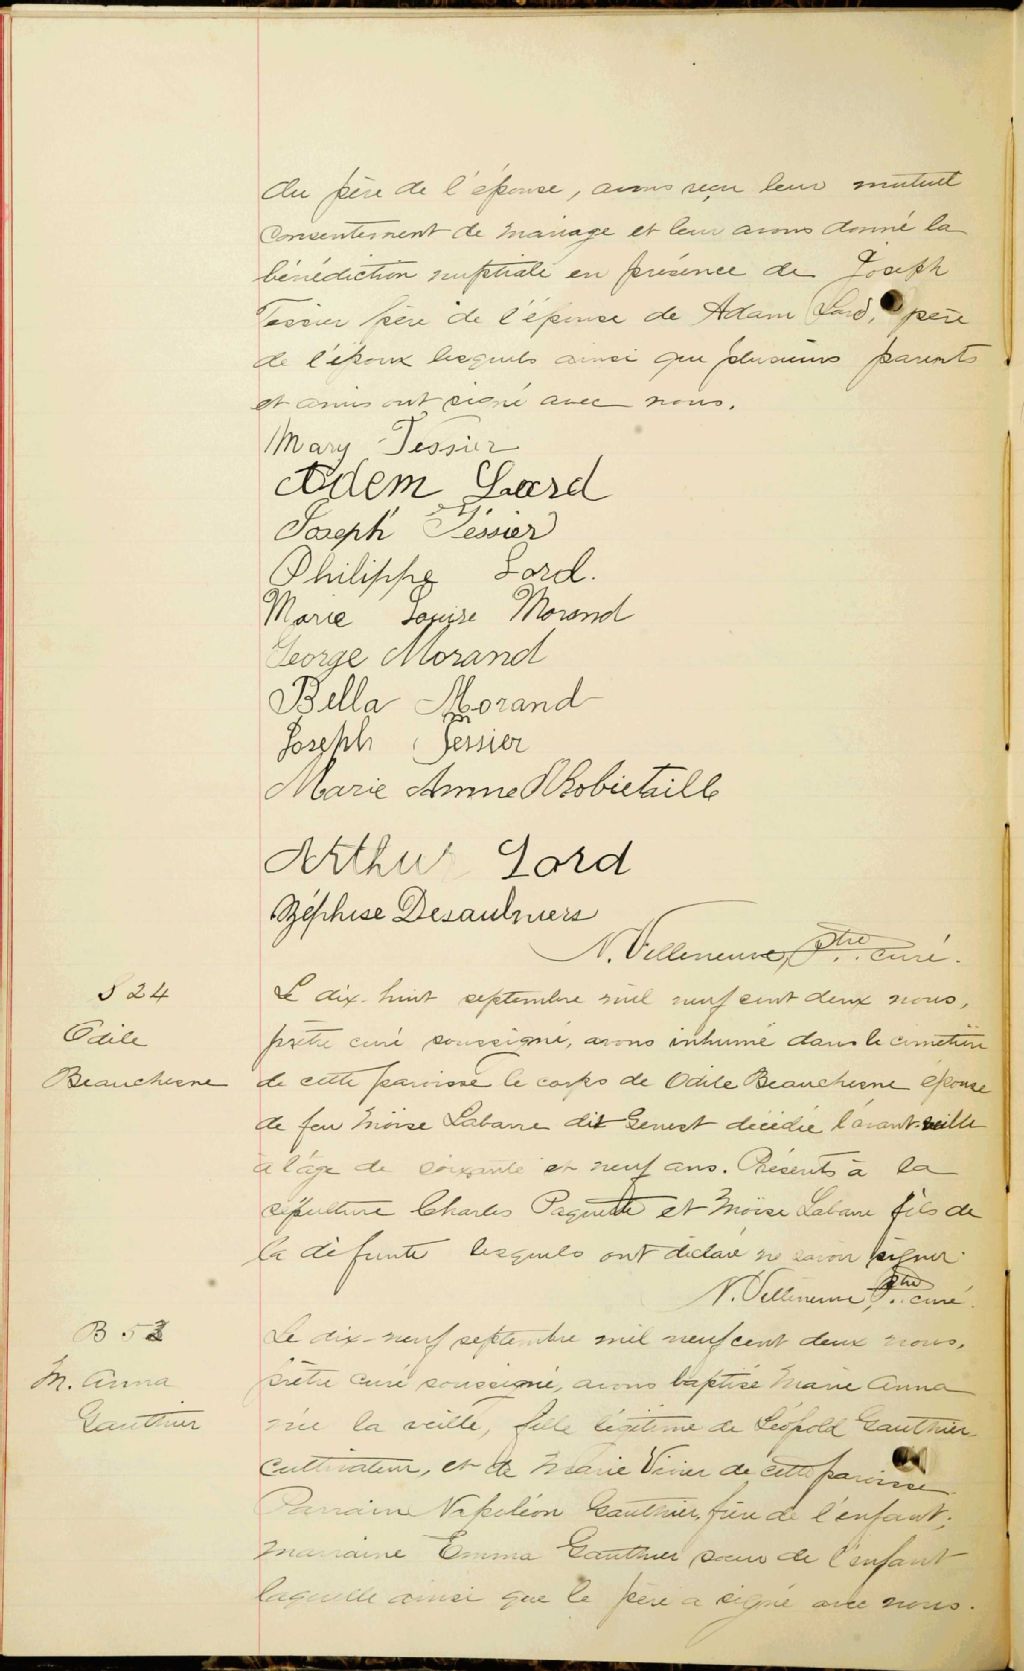 du père de l'épouse, avons reçu leur mutuel
consentement de mariage et leur avons donné la
bénédiction nuptiale en présence de Joseph
Tessier père de l'épouse de Adam Lord, père
de l'époux lesquels ainsi que plusieurs parents
et amis ont signé avec nous.
Mary Tessier
Adem Lord
Joseph Tessier
Philippe Lord.
Marie Louise Morand
George Morand
Bella Morand
Joseph Tessier
Marie Anne Robietaille
Arthur Lord
Zéphise Desaulniers
N. Villeneuve, Ptre curé.
S 24
Odile
Beauchesne
Le dix-huit septembre mil neuf cent deux nous,
prêtre curé soussigné, avons inhumé dans le cimetière
de cette paroisse le corps de Odile Beauchesne épouse
de feu Moïse Labarre dit Genest décédée l'avant-veille
à l'âge de soixante et neuf ans. Présents à la
sépulture Charles Paquette et Moïse Labarre fils de
la défunte lesquels ont déclaré ne savoir signer.
N. Villeneuve, Ptre curé.
B 52
M. Anna
Gauthier
Le dix-neuf septembre mil neuf cent deux nous,
prêtre curé soussigné, avons baptisé Marie Anna
née la veille, fille légitime de Léopold Gauthier
cultivateur, et de Marie Vivier de cette paroisse.
Parrain Napoléon Gauthier, frère de l'enfant;
marraine Emma Gauthier soeur de l'enfant
laquelle ainsi que le père a signé avec nous.